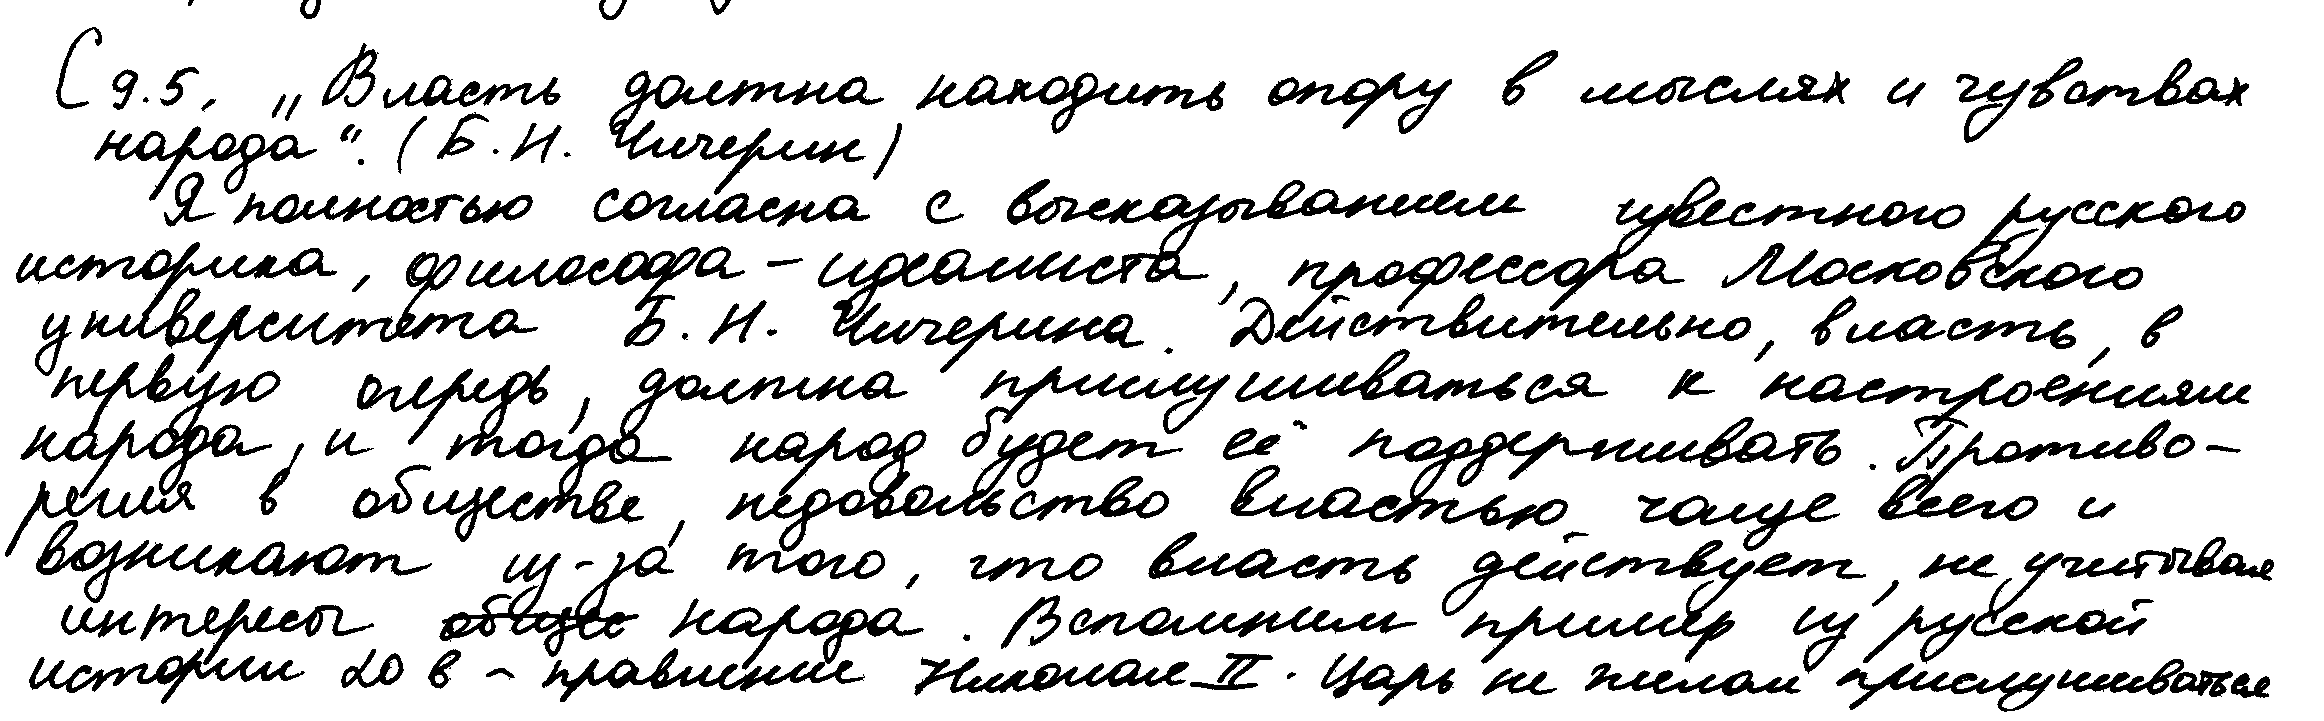 С9.5. „Власть должна находить опору в мыслях и чувствах
народа“. (Б.Н. Чичерин)
Я полностью согласна с высказыванием известного русского
историка, философа-идеалиста, профессора Московского
университета Б.Н. Чичерина. Действительно, власть, в
первую очередь, должна прислушиваться к настроениям
народа, и тогда народ будет её поддерживать. Противо-
речия в обществе, недовольство властью чаще всего и
возникают из-за того, что власть действует, не учитывая
интересы общес народа. Вспомним пример из русской
истории 20 в - правление Николая II. Царь не желал прислушиваться